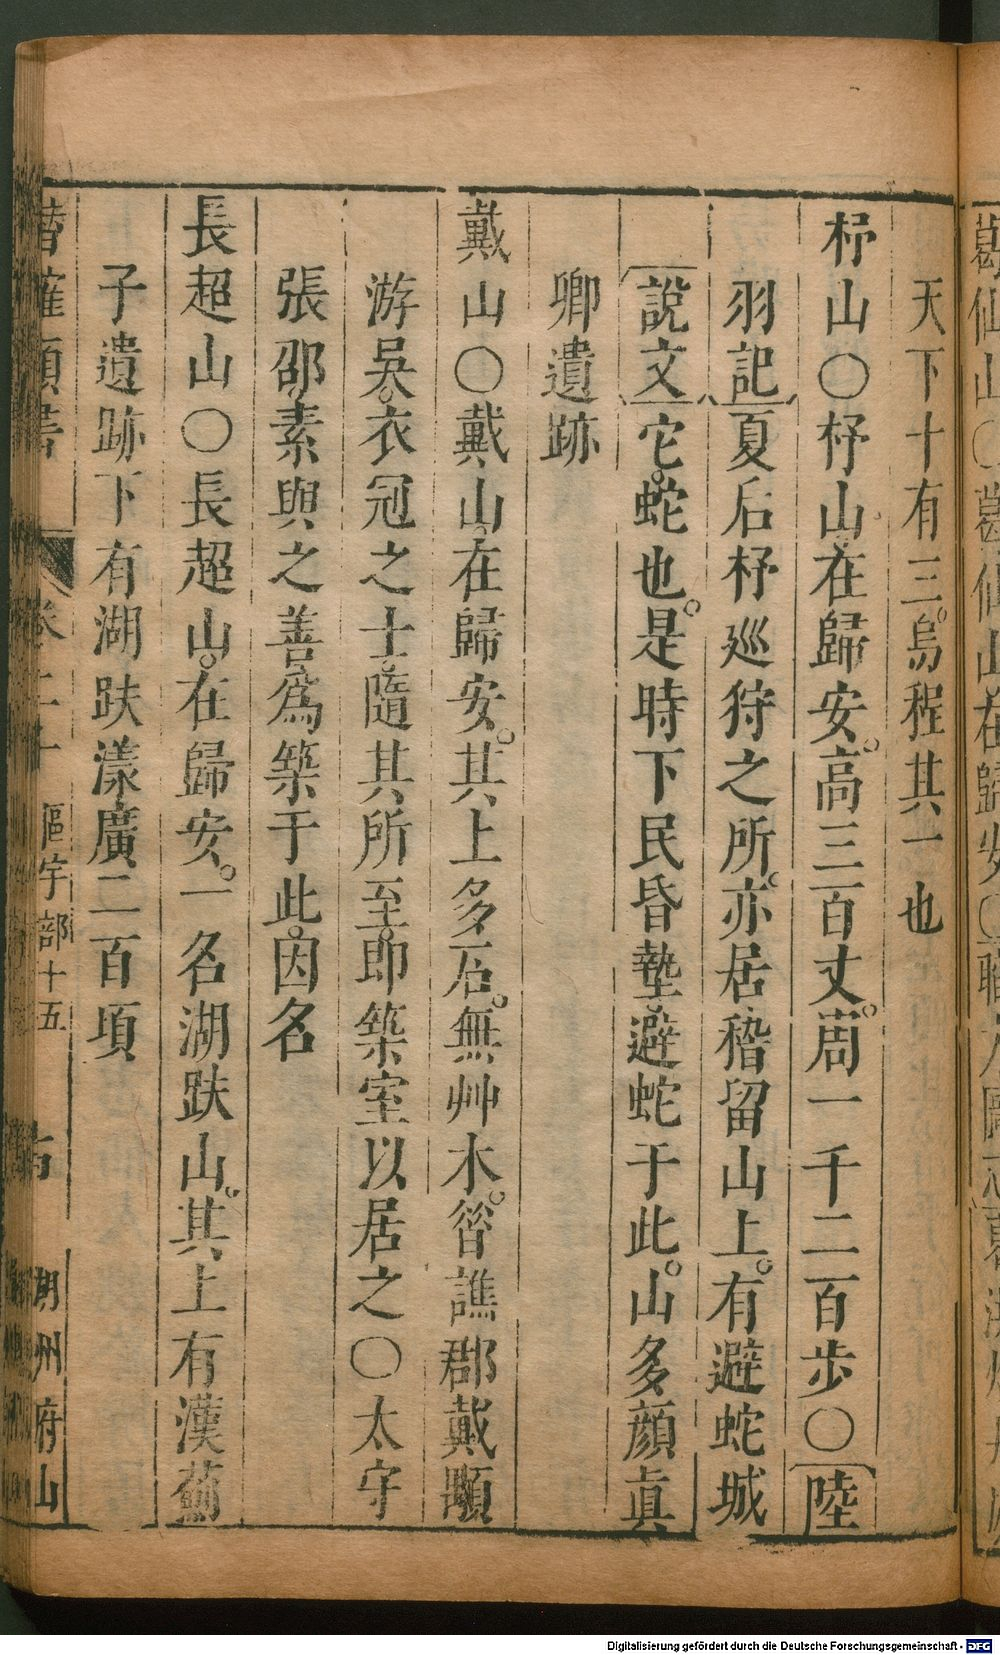 天下十有三烏程其一也
杼山〇杼山在歸安。高三百丈。周一千二百步〇陸
羽記夏后杼巡狩之所。亦居稽留山上。有避蛇城
說文它。蛇也。是時下民昏墊。避蛇于此。山多顏眞
卿遺跡
戴山〇戴山在歸安。其上多石。無艸木。昝譙郡戴顒
游吳。衣冠之士。隨其所至。即築室以居之〇太守
張邵。素與之善。爲築于此。因名
長超山〇長超山。在歸安。一名湖趺山。其上有漢薊
子遺跡下有湖趺漾廣二百項
潛確類書 卷二十 區宇部十五 古 湖州府山
Digitalisierung gefördert durch die Deutsche Forschungsgemeinschaft - DFG